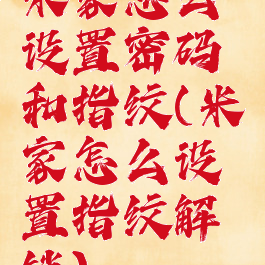 米家怎么
设置密码
和指纹(米
家怎么设
置指纹解
锁)